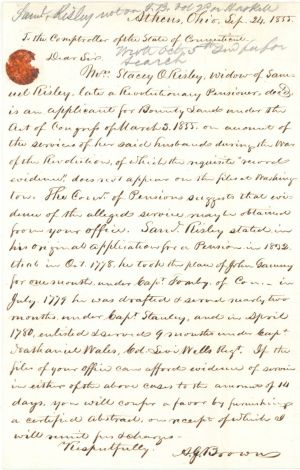 Saml Risley not on
Athens, Ohio, Sep. 24, 1855.
Wrote Oct. 5th
search
To the Comptroller of the State of Connecticut.
Dear Sir,
Mrs. Stacey O Risley, widow of Sam-
uel Risley, late a Revolutionary Pensioner, decd,
is an applicant for Bounty Lands under the
Act of Congress of March 3, 1855. on account of
the services of her said husband during the War
of the Revolution, of which the requisite "record
evidence" does not appear on the files at Washing-
ton. The Comr of Pensions suggests that evi-
dence of the alleged service may be obtained
from your office. Saml Risley stated in
his original application for a Pension in 1832
that in Oct. 1778, he took the place of John
for one month, under Capt of Con., in
July 1779 he was drafted & served nearly two
months, under Capt Stanley, and in April
1780, enlisted & served 9 months under Capt
Nathaniel Wales, Col. Levi Wells Regt. If the
files of your office can afford evidence of service
in either of the above cases to the amount of 14
days, you will confer a favor by furnishing
a certified abstract, on receipt of which I
will remit fees & charges.
Respectfully,
Brown